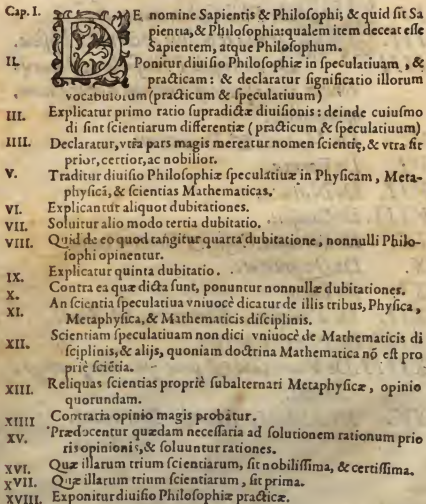 Cap. I. DE nomine Sapientis & Philosophi; & quid sit Sa
pientia, & Philosophia: qualem item deceat esse
Sapientem, atque Philosophum.
II. Ponitur diuisio Philosophiæ in speculatiuam, &
practicam: & declaratur significatio illorum
vocabulorum (practicum & speculatiuum)
III. Explicatur primo ratio supradictæ diuisionis: deinde cuiusmo
di sint scientiarum differentiæ (practicum & speculatiuum)
IIII. Declaratur, vtra pars magis mereatur nomen scientię, & vtra sit
prior, certior, ac nobilior.
V. Traditur diuisio Philosophiæ speculatiuæ in Physicam, Meta-
physicā, & scientias Mathematicas.
VI. Explicantur aliquot dubitationes.
VII. Soluitur alio modo tertia dubitatio.
VIII. Quid de eo quod tangitur quarta dubitatione, nonnulli Philo-
sophi opinentur.
IX. Explicatur quinta dubitatio.
X. Contra ea quæ dicta sunt, ponuntur nonnullæ dubitationes.
XI. An scientia speculatiua vniuocè dicatur de illis tribus, Physica,
Metaphysica, & Mathematicis disciplinis.
XII. Scientiam speculatiuam non dici vniuocè de Mathematicis di
sciplinis, & alijs, quoniam doctrina Mathematica nō est pro
priè sciētia.
XIII. Reliquas scientias propriè subalternari Metaphysicæ, opinio
quorundam.
XIIII Contraria opinio magis probatur.
XV. Prædocentur quædam necessaria ad solutionem rationum prio
ris opinionis, & soluuntur rationes.
XVI. Quæ illarum trium scientiarum, sit nobilissima, & certissima.
XVII. Quæ illarum trium scientiarum, sit prima.
XVIII. Exponitur diuisio Philosophiæ practicæ.